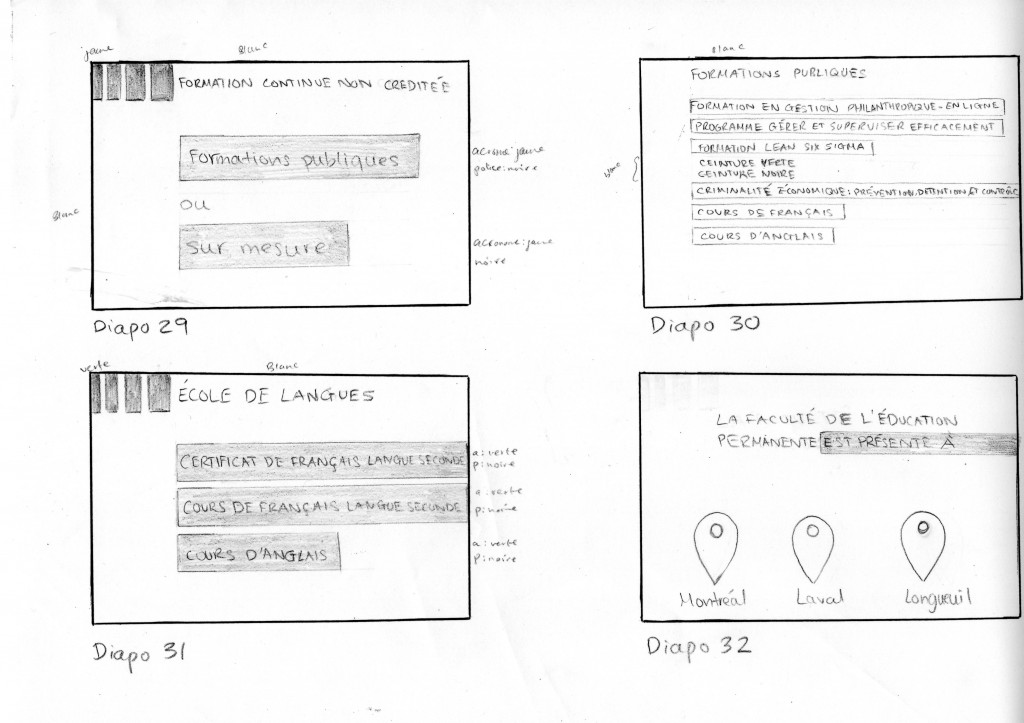 jaune
Blanc
FORMATION CONTINUE NON CREDITEÉ
Formations publiques
police: noire
ou
Blanc
Sur mesure
noire
Diapo 29
Blanc
FORMATIONS PUBLIQUES
FORMATION EN GESTION PHILANTHROPIQUE - EN LIGNE
PROGRAMME GÉRER ET SUPERVISER EFFICACEMENT
FORMATION LEAN SIX SIGMA
blanc
CEINTURE VERTE
CEINTURE NOIRE
CRIMINALITÉ ÉCONOMIQUE: PRÉVENTION, ET CONTRÔLE
COURS DE FRANÇAIS
COURS D'ANGLAIS
Diapo 30
verte
Blanc
ÉCOLE DE LANGUES
CERTIFICAT DE FRANÇAIS LANGUE SECONDE
a: verte
p: noire
COURS DE FRANÇAIS LANGUE SECONDE
a: verte
p: noire
COURS D'ANGLAIS
a: verte
P: noire
Diapo 31
LA FACULTÉ DE L'ÉDUCATION
PERMANENTE EST PRÉSENTE À
Montréal
Laval
Longueuil
Diapo 32